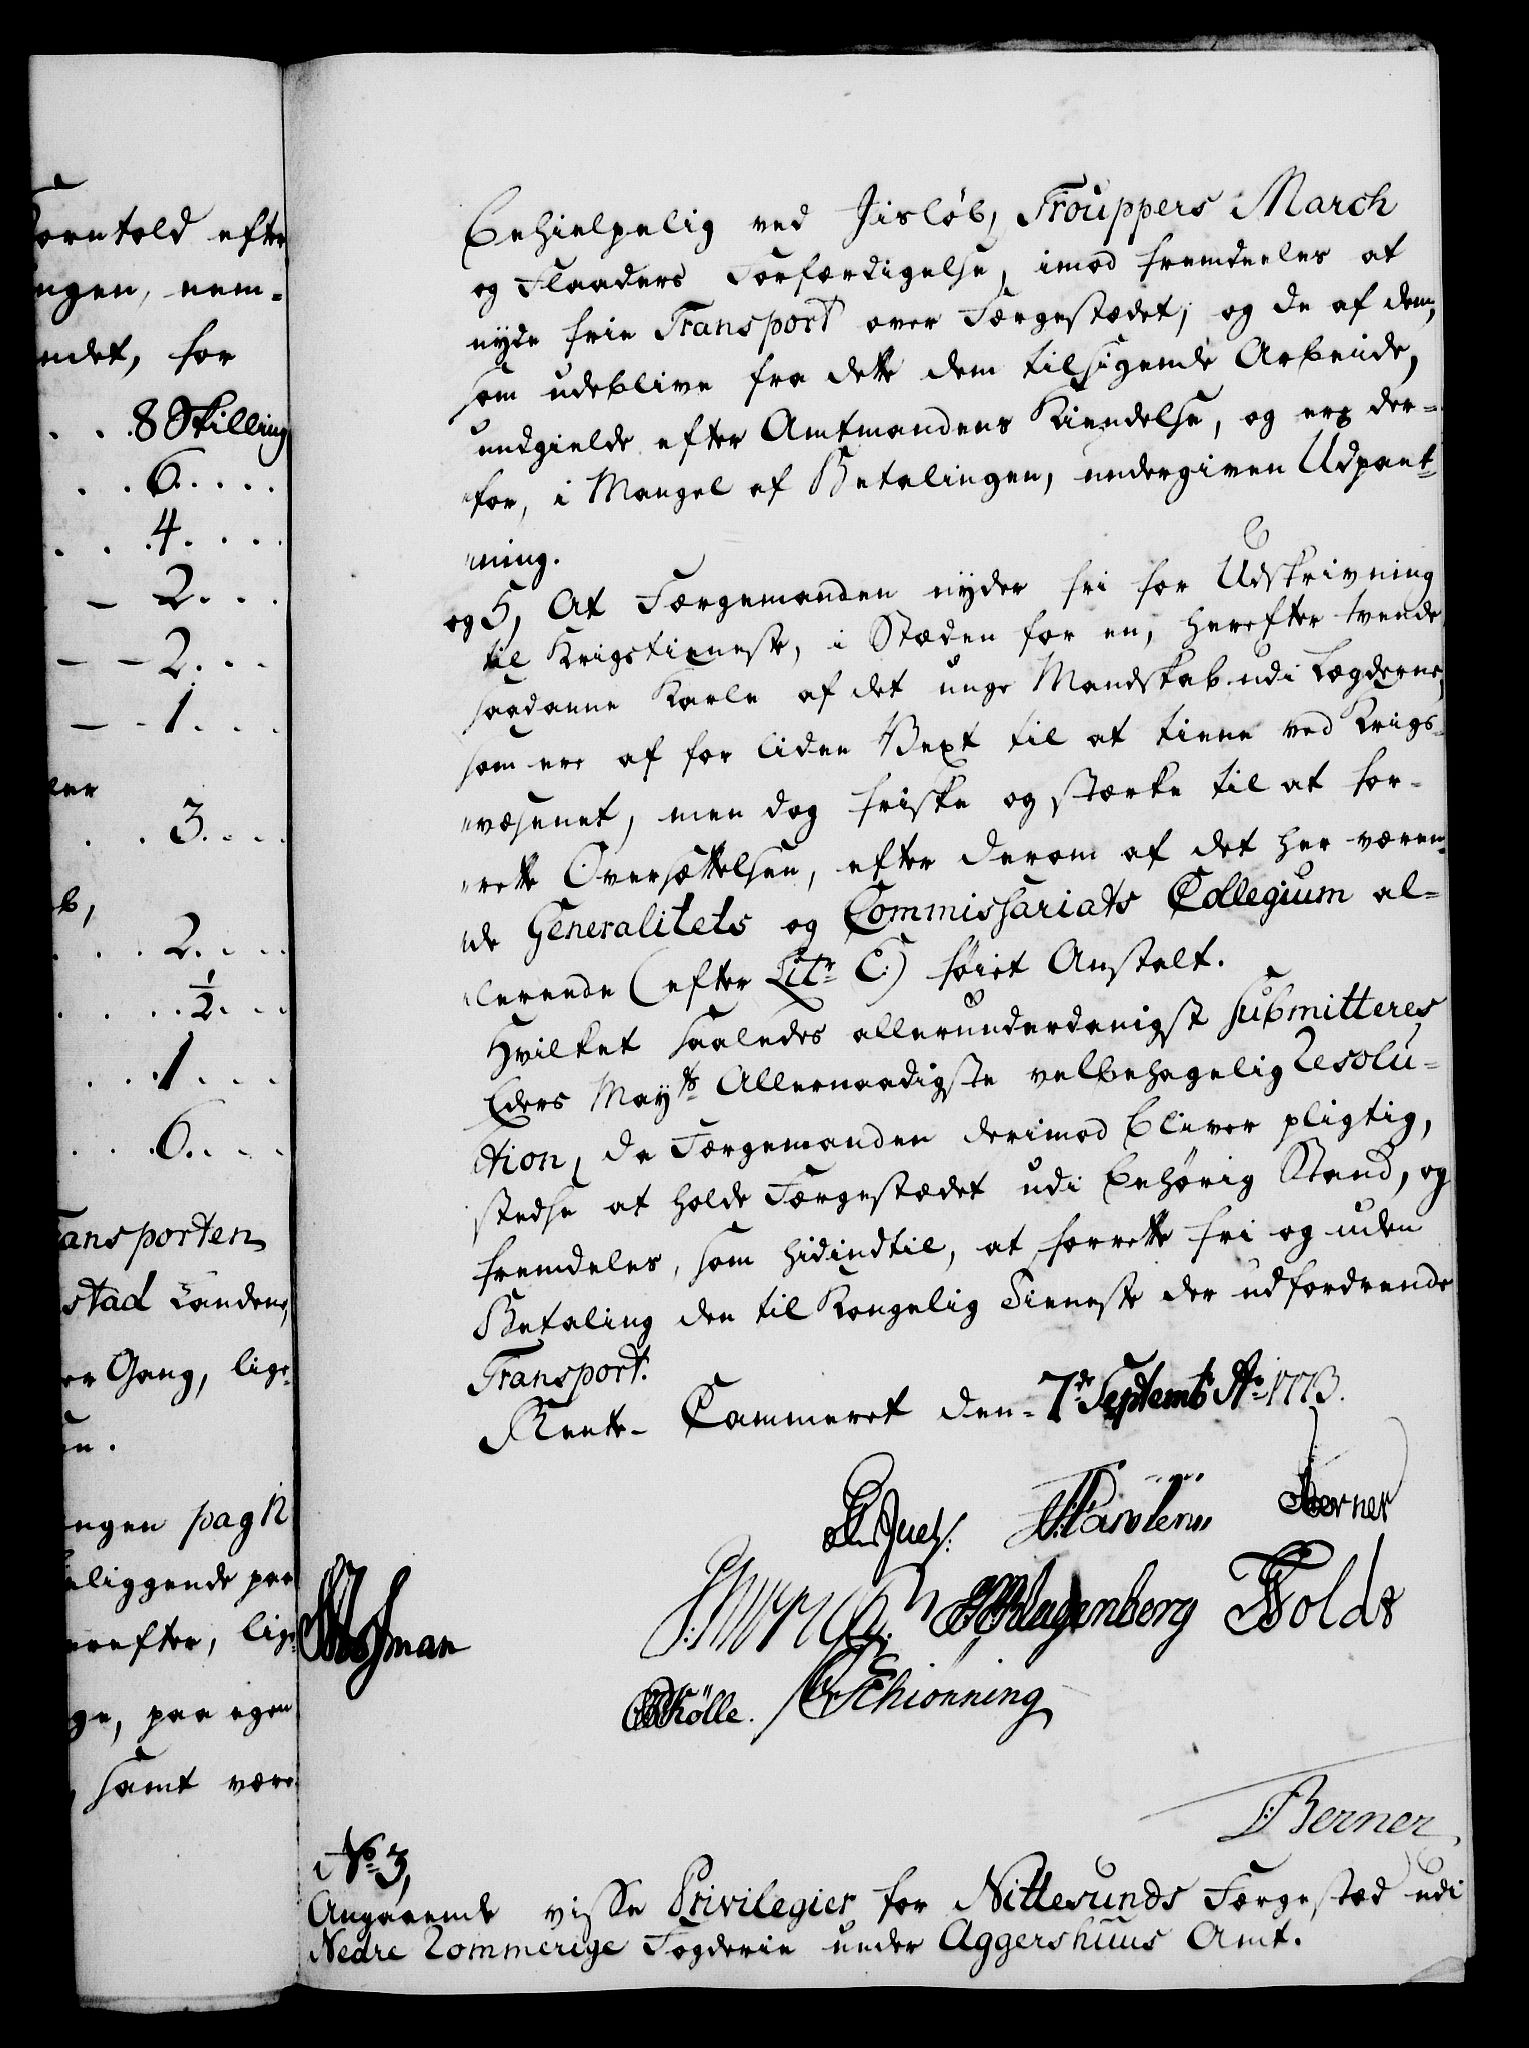 orntold efter
ngen, nem-
ndet, for
. . 8 Skilling
. . 6. . . .
. . 4. . . .
- 2. . .
- - 2. . .
- - 1. . .
ler
. . 3. . . .
b,
. . . 2. . . .
. . . . ½. . .
. . . 1. . . .
. . . 6. . . .
ansporten
stad Landeus,
er Gang, lige-
en.
ngen pag 12
eliggende paa
erefter, lig-
ge, paa egen
samt være
behielpelig ved Jisløb, Trouppers March
og Flaaders Forfærdigelse, imod fremdeeles at
nyde frie Transport over Færgestædet; og de af dem,
som udeblive fra dette dem tilsigende Arbeide,
undgielde efter Amtmandens Kiendelse, og ere der-
for, i Mangel af Betalingen, undergiven Udpant-
ning.
og 5, At Færgemanden nyder fri for Udskrivning
til Krigstieneste, i Stæden for en, herefter tvende
saadanne Karle af det unge Mandskab udi Lægderne,
som ere af for liden Vext til at tiene ved Krigs-
væsenet, men dog friske og stærke til at for-
rette Oversættelsen, efter derom af det her væren-
de Generalitets og Commissariats Collegium al-
lerende (efter Litr C.) føiet Anstalt.
Hvilket saaledes allerunderdanigst submitteres
Eders Mayts Allernaadigste velbehagelig Resolu-
tion, da Færgemanden derimod bliver pligtig,
stedse at holde Færgestædet udi behørig Stand, og
fremdeles, som hidindtil, at forrette fri og uden
Betaling den til Kongelig Tieneste der udfordrende
Transport.
Rente-Cammeret den 7de Septembr Ao 1773.
Juel. Berner
Klagenberg Holdt
Hofman
Kölle. Schiönning
Berner
No 3,
Angaaende visse Privilegier for Nittesunds Færgestæd udi
Nedre Rommerige Fogderie under Aggershuus Amt.